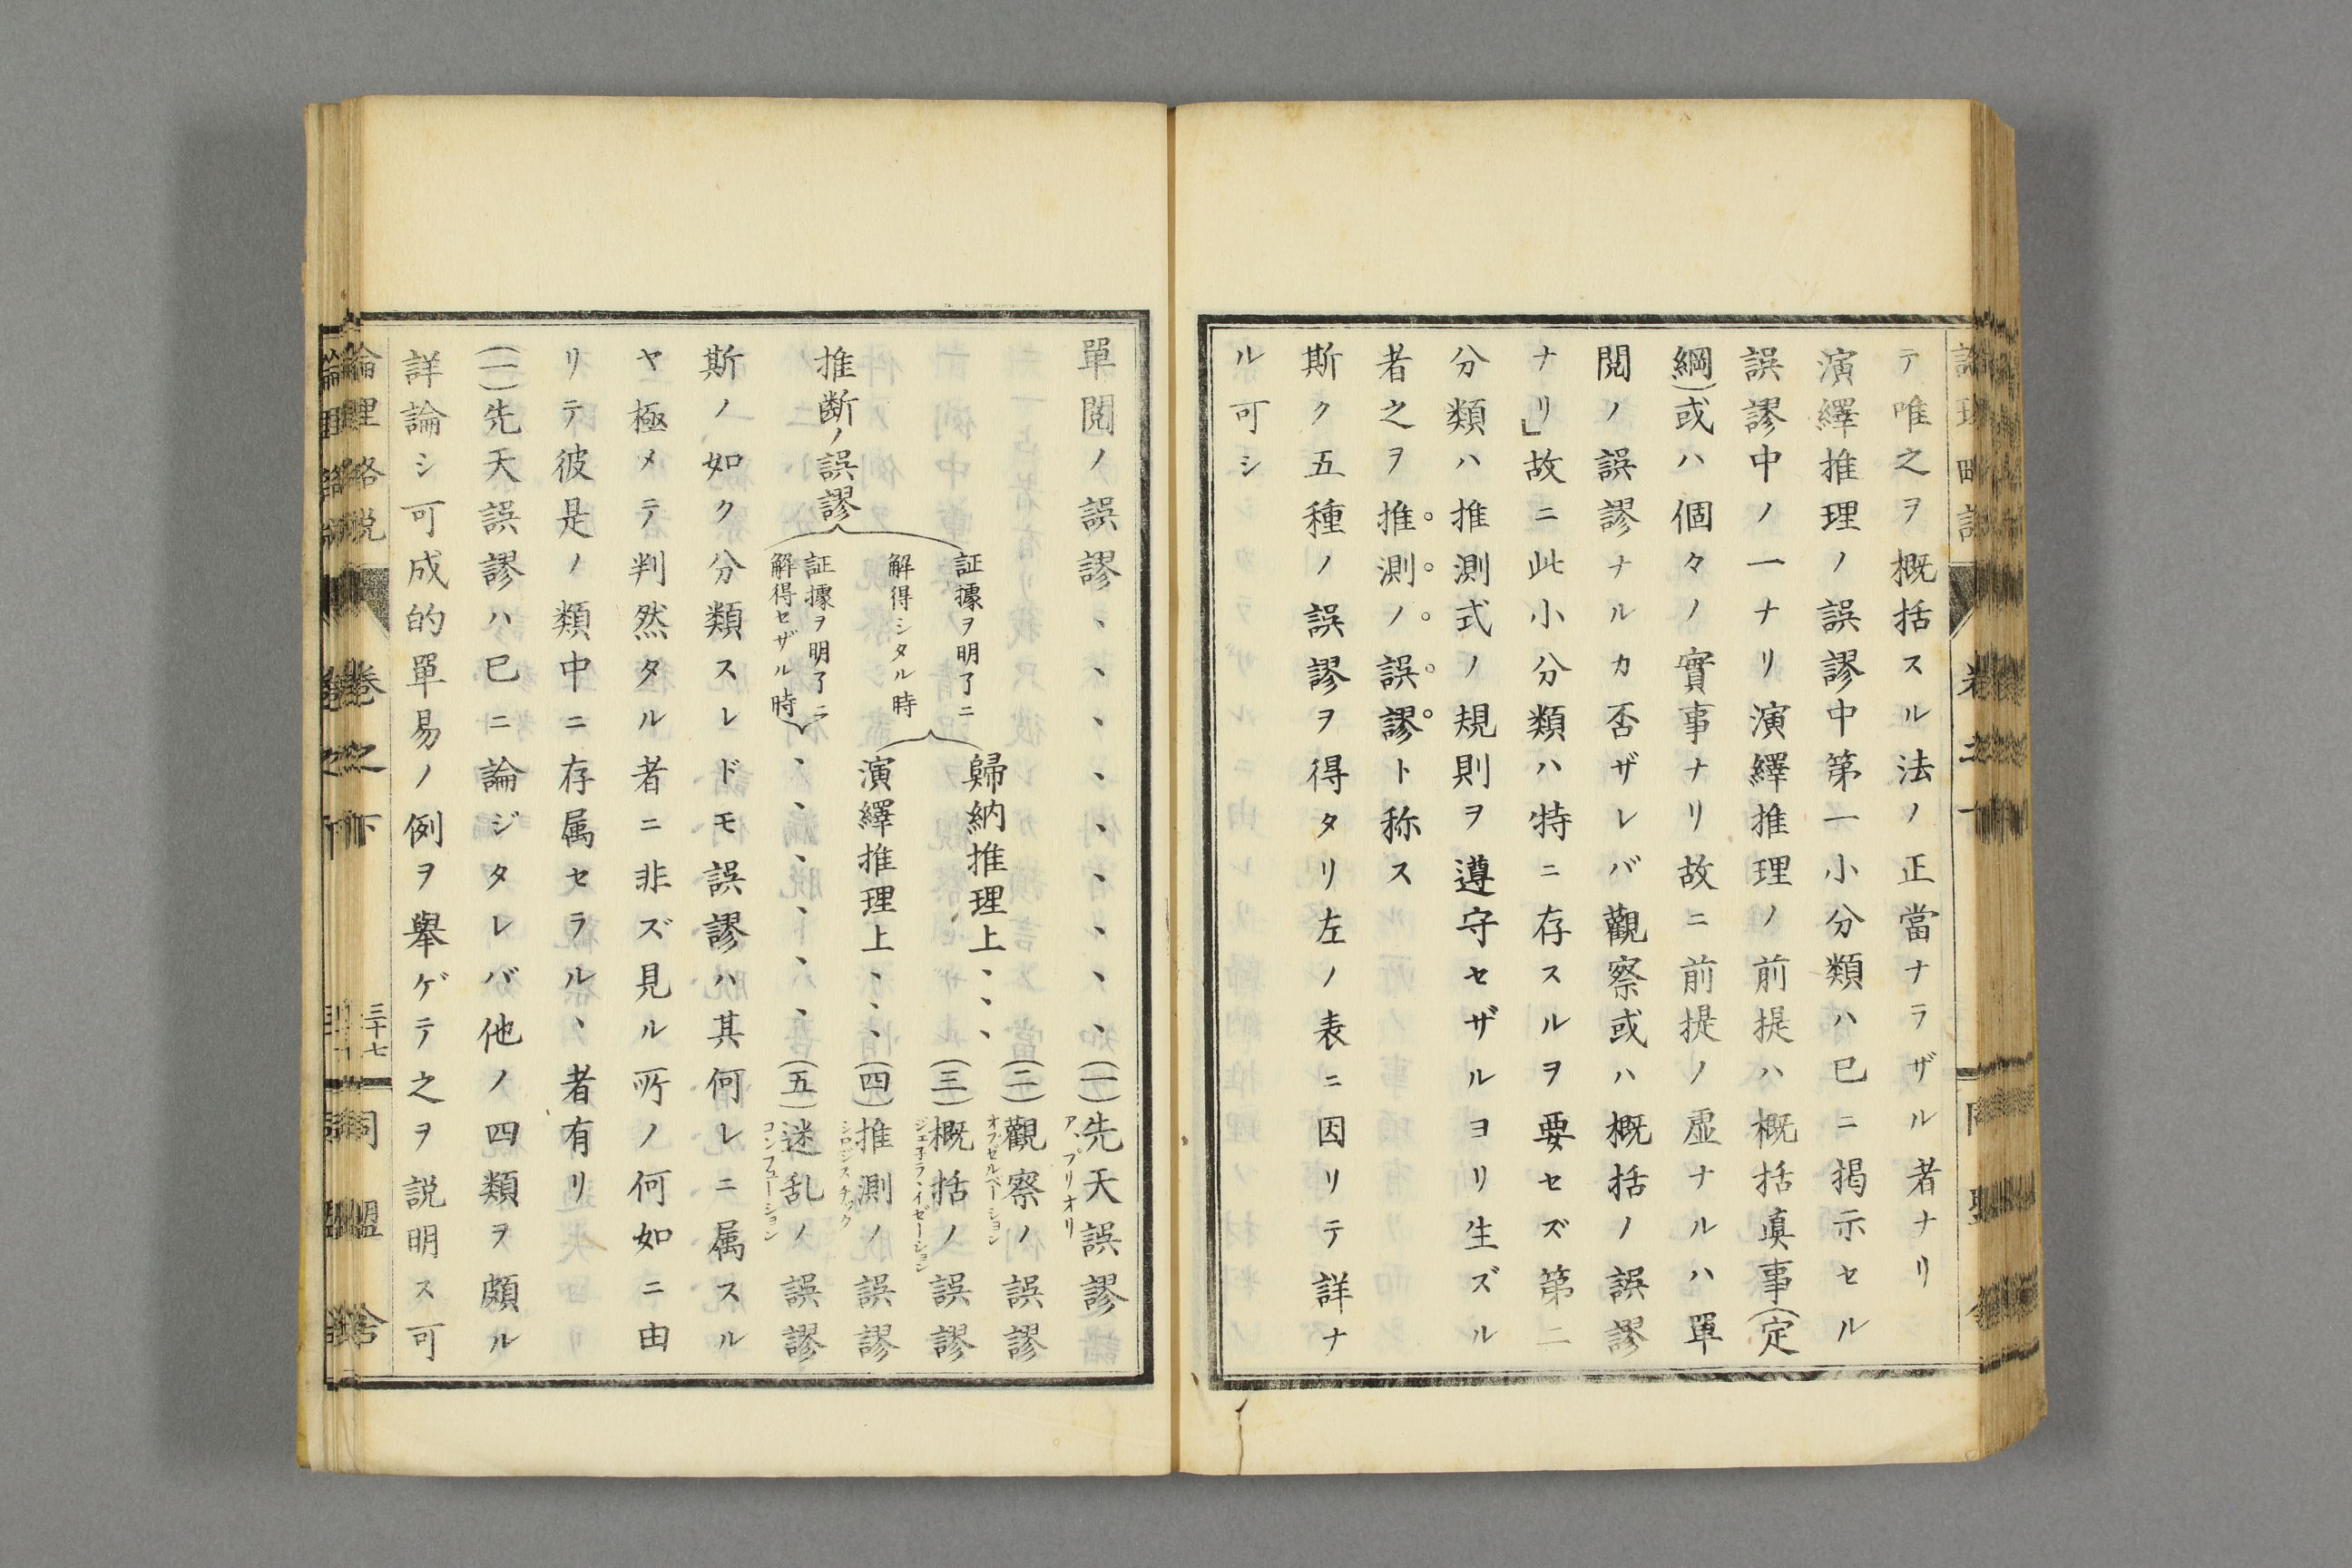 テ唯之ヲ概括スル法ノ正當ナラザル者ナリ
演繹推理ノ誤謬中第一小分類ハ已ニ掲示セル
誤謬中ノ一ナリ演繹推理ノ前提ハ概括眞事(定
綱)或ハ個々ノ實事ナリ故ニ前提ノ虚ナルハ單
閲ノ誤謬ナルカ否ザレバ觀察或ハ概括ノ誤謬
ナリ」故ニ此小分類ハ特ニ存スルヲ要セズ第二
分類ハ推測式ノ規則ヲ遵守セザルヨリ生ズル
者之ヲ推測ノ誤謬ト称ス
斯ク五種ノ誤謬ヲ得タリ左ノ表ニ因リテ詳ナ
ル可シ
單閲ノ誤謬、、、、、、、、、(一)先天誤謬
ア、プリオリ
推断ノ誤謬
証據ヲ明了ニ
解得シタル時
歸納推理上、、、
(二)觀察ノ誤謬
オブゼルベーション
(三)概括ノ誤謬
ジェ子ラ、イゼーション
演繹推理上、、、(四)推測ノ誤謬
シロジスチック
証據ヲ明了ニ
解得セザル時
、、、、、、(五)迷乱ノ誤謬
コンフュージョン
斯ノ如ク分類スレドモ誤謬ハ其何レニ属スル
ヤ極メテ判然タル者ニ非ズ見ル所ノ何如ニ由
リテ彼是ノ類中ニ存属セラル、者有リ
(一)先天誤謬ハ已ニ論ジタレバ他ノ四類ヲ頗ル
詳論シ可成的單易ノ例ヲ舉ゲテ之ヲ説明ス可
論理略説
卷之下
三十七
同盟舎